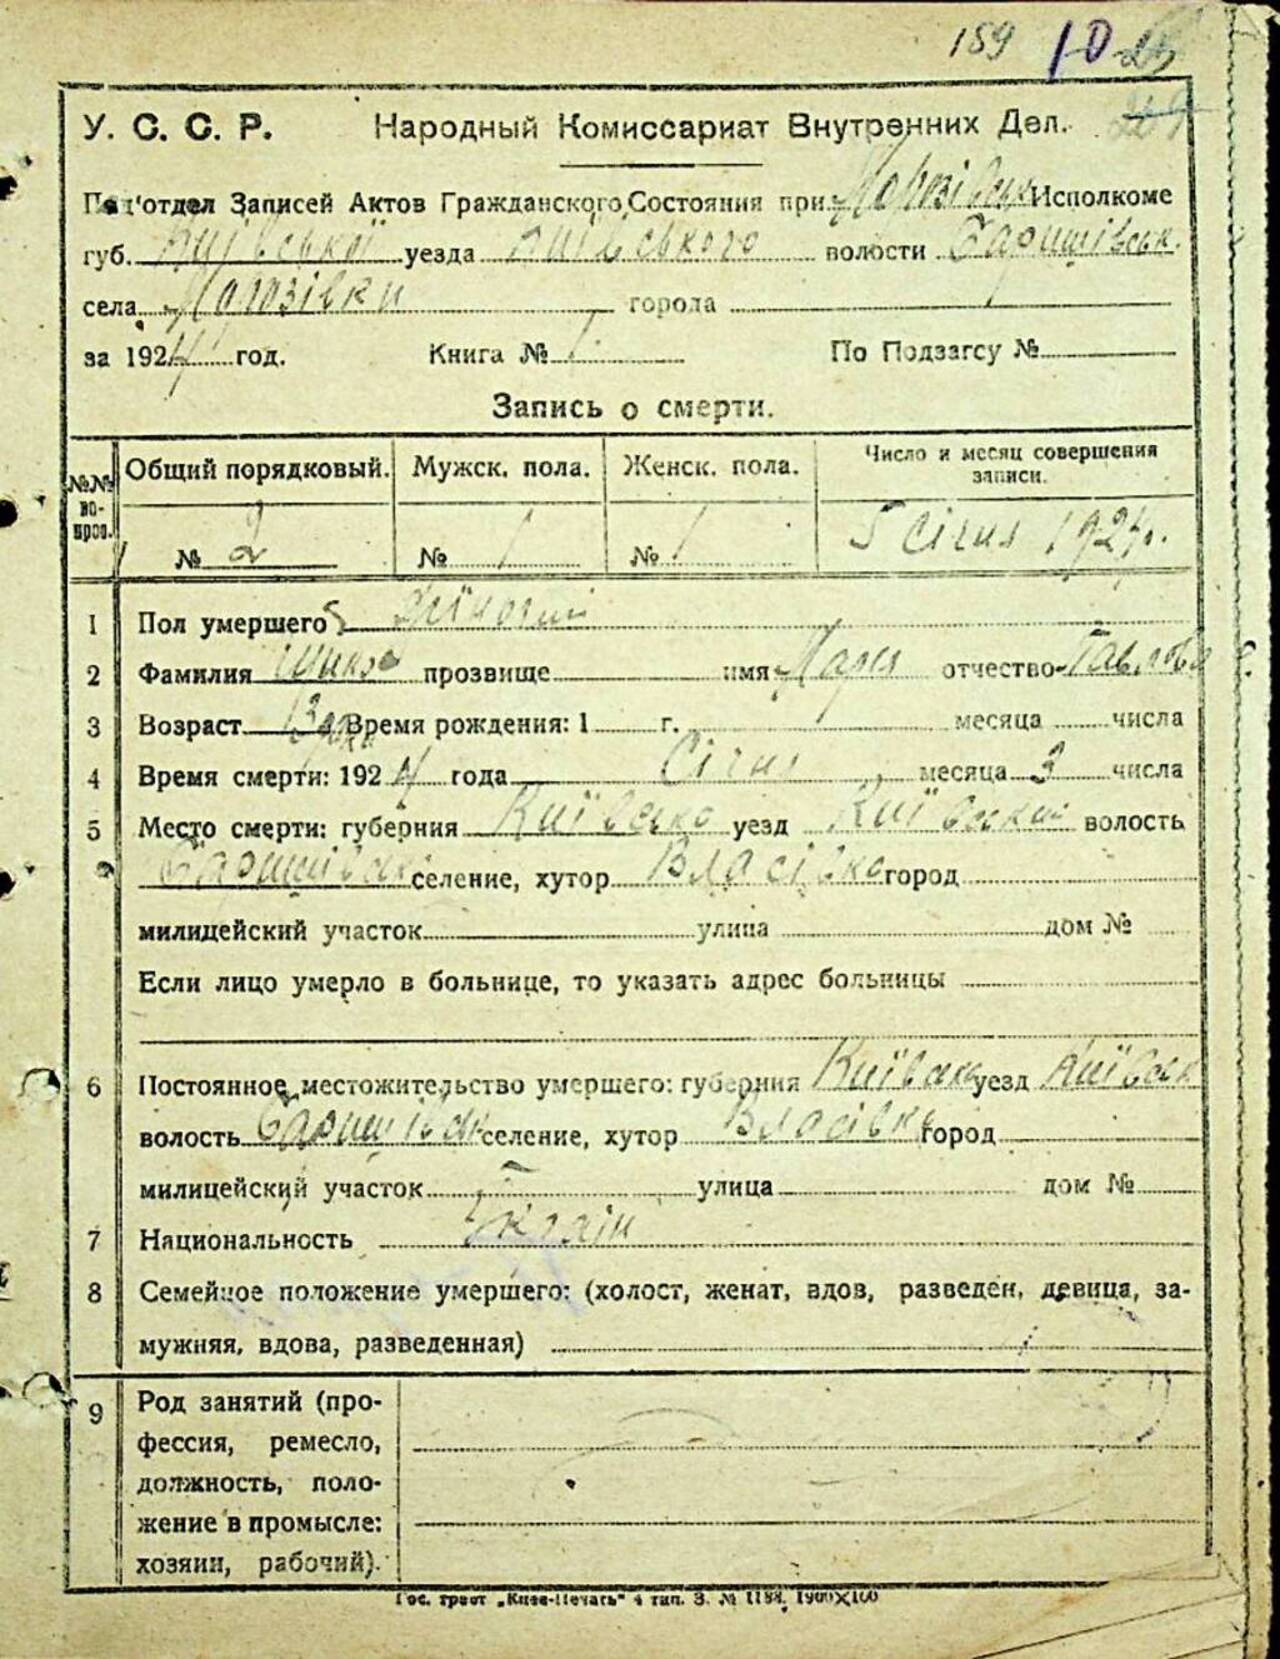 159 10
У. С. С. Р. Народный Комиссариат Внутренних Дел.
Под'отдел Записей Актов Гражданского Состояния при Морозівськ Исполкоме
губ. Київської уезда Київського волости Баришівськ.
села Морозівки города
за 1924 год. Книга № 1. По Подзагсу №
Запись о смерти.
№№ во-прос. Общий порядковый. Мужск. пола. Женск. пола. Число и месяц совершения записи.
№ 2 № 1 № 1 5 Січня 1924р.
1 Пол умершего Жіночий
2 Фамилия прозвище имя Марія отчество Павлова
3 Возраст Время рождения: 1 г. месяца числа
4 Время смерти: 1924 года Січня месяца 3 числа
5 Место смерти: губерния Київсько уезд Київський волость
Баришівськ селение, хутор Власівка город
милицейский участок улица дом №
Если лицо умерло в больнице, то указать адрес больницы
6 Постоянное местожительство умершего: губерния Київськ уезд Київськ
волость Баришівськ селение, хутор Власівка город
милицейский участок улица дом №
7 Национальность Україн
8 Семейное положение умершего: (холост, женат, вдов, разведен, девица, за-
мужняя, вдова, разведенная)
9 Род занятий (про-
фессия, ремесло,
должность, поло-
жение в промысле:
хозяин, рабочий).
Гос. трест „Киев-Печать" 4 тип. З. № 1188. 1900×100